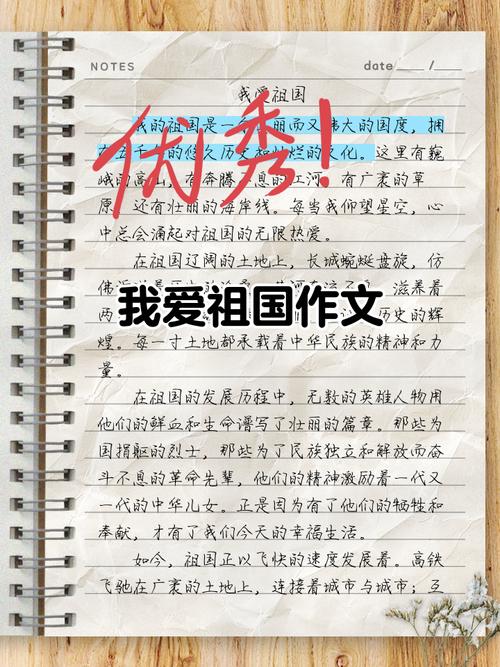 NOTES
date___/__
我爱祖国
我的祖国是一个 丽而又伟大的国度，拥
有五千 的悠久历史和灿烂的文化。这里有巍
峨的高山，有奔腾 息的江河，有广袤的草
原，还有壮丽的海岸线。每当我仰望星空，心
中总会涌起对祖国的无限热爱。
优秀！
在祖国辽阔的土地上，长城蜿蜒盘旋，仿
佛 滋养着
我爱祖国作文
两 历史的辉
煌。每一寸土地都承载着中华民族的精神和力
量。
在祖国的发展历程中，无数的英雄人物用
他们的鲜血和生命谱写了壮丽的篇章。那些为
国捐躯的烈士，那些为了民族独立和解放而奋
斗不息的革命先辈，他们的精神激励着一代又
一代的中华儿女。正是因为有了他们的牺牲和
奉献，才有了我们今天的幸福生活。
如今，祖国正以飞快的速度发展着。高铁
飞驰在广袤的土地上，连接着城市与城市；互